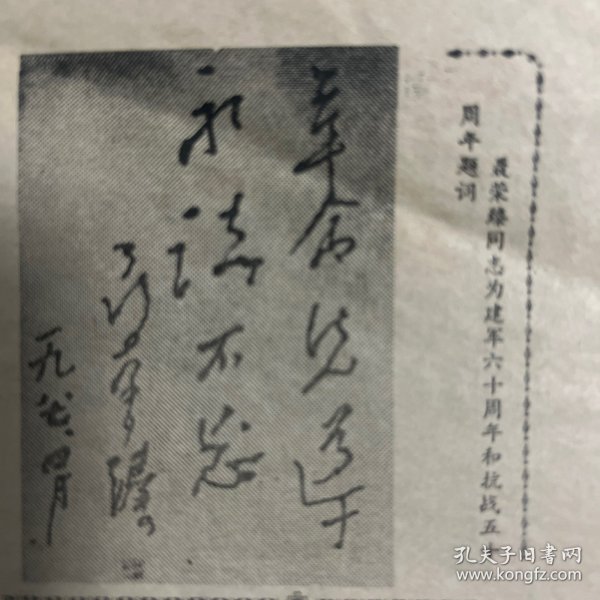 聂荣臻同志为建军六十周年和抗战五十
周年题词
革命先
永誌不忘
聂荣臻
一九八七、四月
孔夫子旧书网
www.kongfz.com